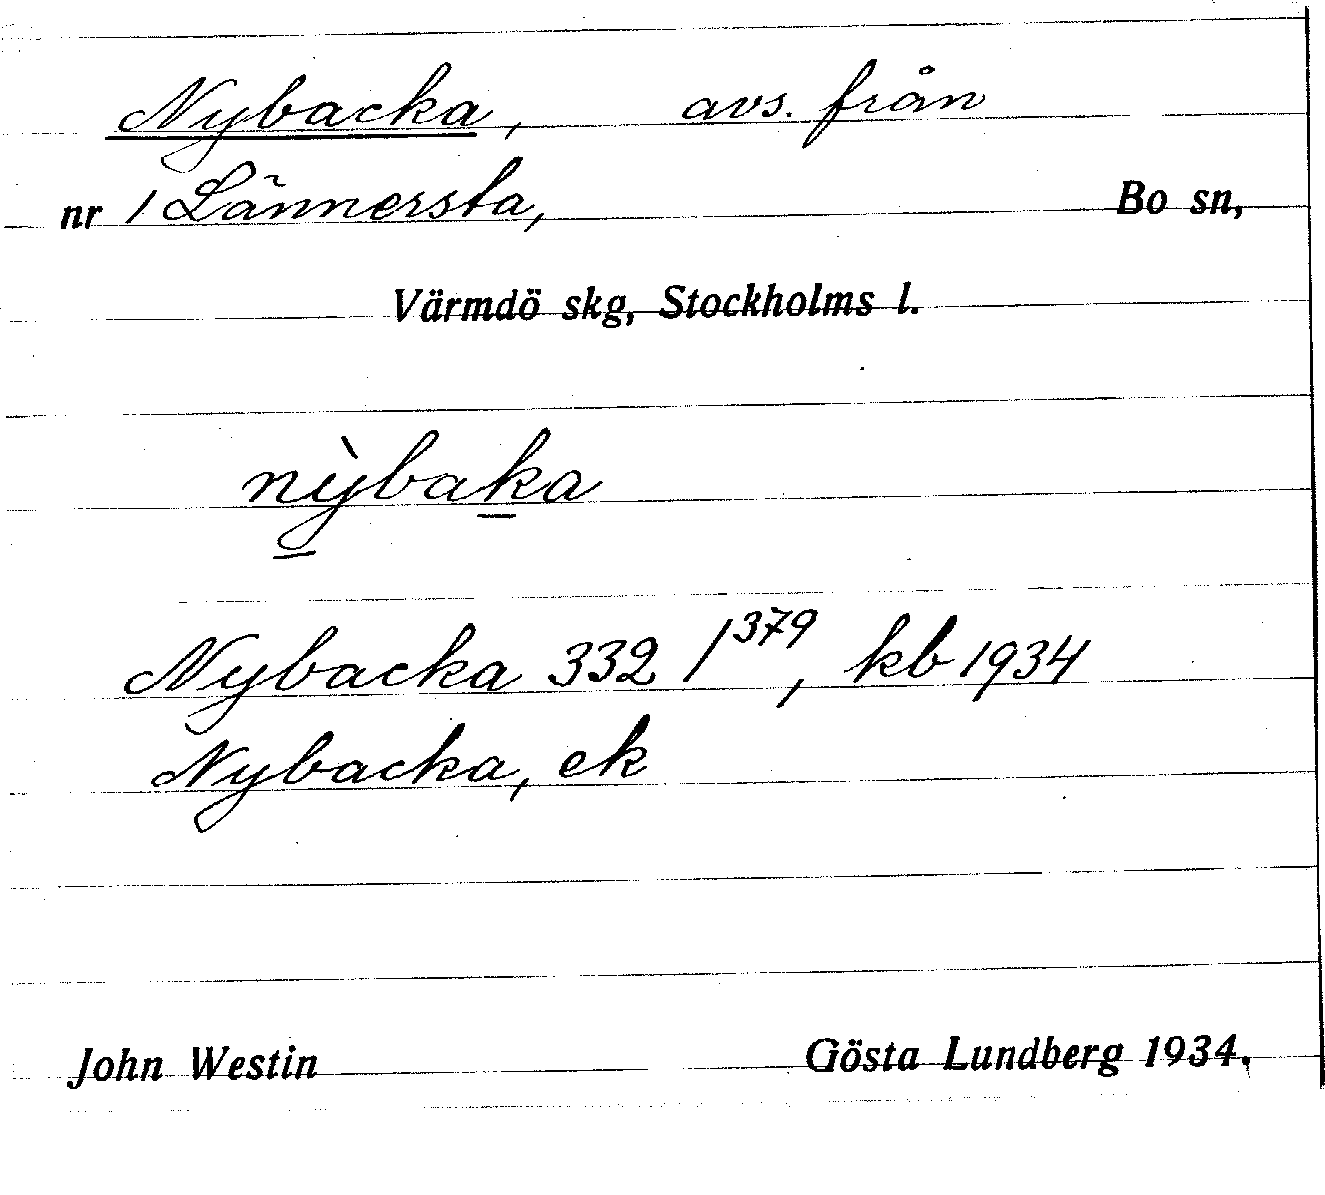 Nybacka, avs. från
nr 1 Lännersta, Bo sn,
Värmdö skg, Stockholms l.
nỳbaka
Nybacka 332 1³⁷⁹, kb 1934
Nybacka, ek
John Westin Gösta Lundberg 1934.